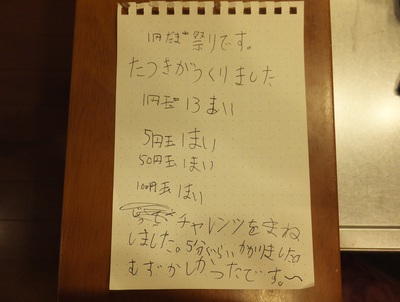 1円だま祭りです。
たつきがつくりました
1円玉 13まい
5円玉 1まい
50円玉 1まい
100円玉 1まい
チャレンジをまね
しました。5分ぐらいかかりました。
むずかしかったです。〜